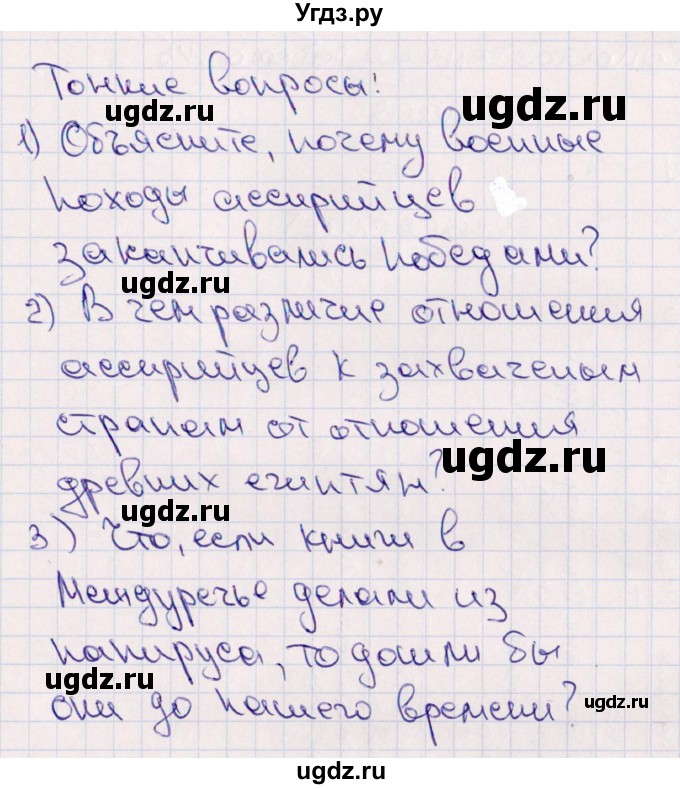 Угдз.ру
Тонкие вопросы:
ugdz.ru
ugdz.ru
1) Объясните, почему военные
походы ассирийцев
ugdz.ru
заканчивались победами?
ugdz.ru
2) В чем различие отношения
ugdz.ru
ассирийцев к захваченым
странам от отношения
ugdz.ru
ugdz.ru
древних египтян?
ugdz.ru
3) Что, если книги в
Междуречье делали из
ugdz.ru
папируса, то дошли бы
ugdz.ru
они до нашего времени?
ugdz.ru
ugdz.ru